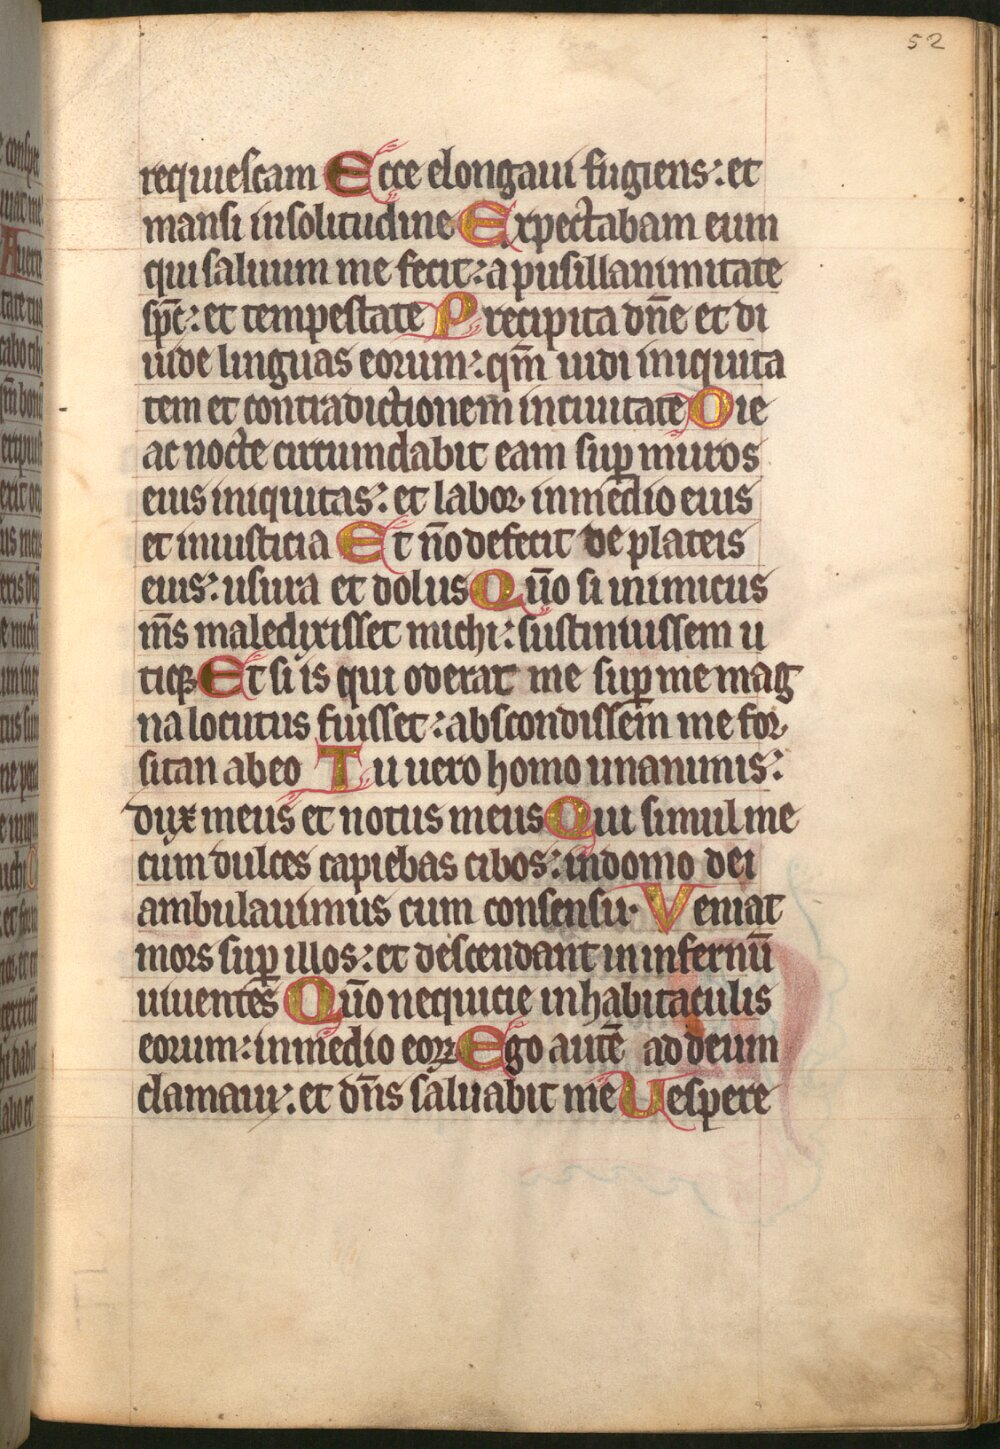 52
requiescam Ecce elongaui fugiens: et
mansi in solitudine Expectabam eum
qui saluum me fecit: a pusillanimitate
sp̄c: et tempestate Precipita dn̄e et di
uide linguas eorum: qm̄ uidi iniquita
tem et contradictionem in ciuitate Die
ac nocte circumdabit eam sup̱ muros
eius iniquitas: et labor in medio eius
et iniusticia Et n̄o defecit de plateis
eius: usura et dolus Qūo si inimicus
m̄s maledixisset michi: sustinuissem u
tiqꝫ Et si is qui oderat me sup̱ me mag
na locutus fuisset: abscondissem me for
sitan ab eo Tu uero homo unanimis:
dux meus et notus meus Qui simul me
cum dulces capiebas cibos: in domo dei
ambulauimus cum consensu. Veniat
mors sup̱ illos: et descendant in infernū
uiuentes Qūo nequicie in habitaculis
eorum: in medio eoꝝ Ego autē ad deum
clamaui: et dn̄s saluabit me Vespere